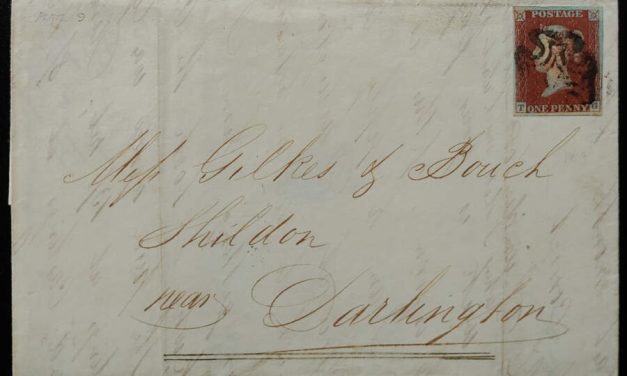 POSTAGE
T G
ONE PENNY
Mess Gilkes & Bouch
Shildon
near Darlington